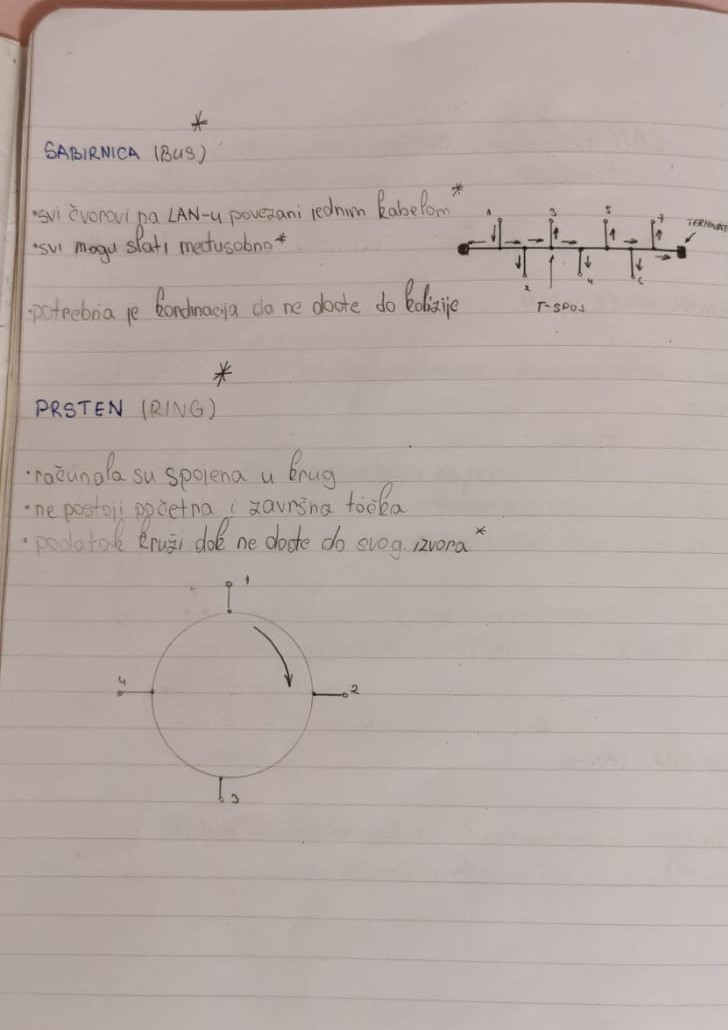 *
SABIRNICA (BUS)
•svi čvorovi na LAN-u povezani jednim kabelom*
•svi mogu slati međusobno*
•potrebna je kordinacija da ne dođe do kolizije
1 3 5 7
2 4 6
T-SPOJ
*
PRSTEN (RING)
•računala su spojena u krug
•ne postoji početna i završna točka
•podatak kruži dok ne dođe do svog izvora*
1
4 2
3